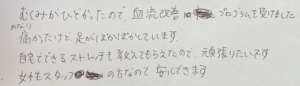 むくみがひどかったので 血流改善 プログラムを受けました
かなり
痛かったけど、足がぽかぽかしています
自宅でできるストレッチも教えてもらえたので、頑張りたいです
女性スタッフ のちなので 安心できます